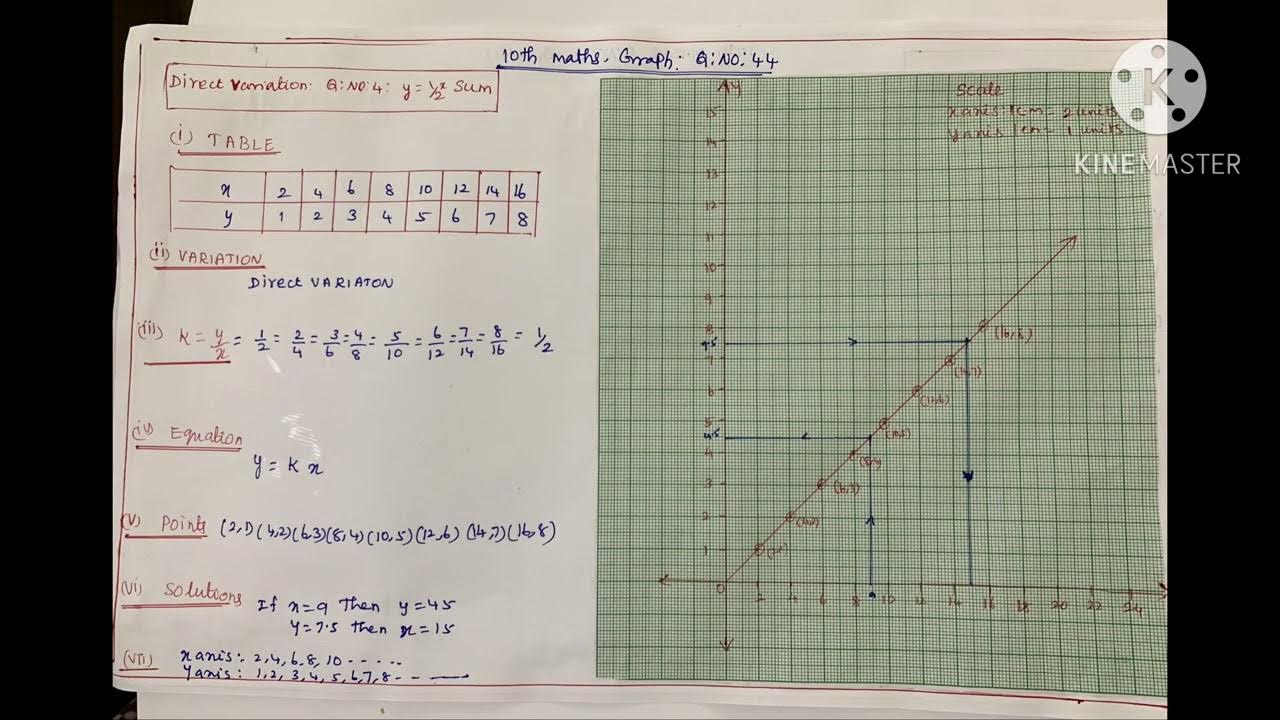 10th maths. Graph: Q:NO:44
Direct Variation: Q:NO:4: y = 1/2 x Sum
(i) TABLE
x 2 4 6 8 10 12 14 16
y 1 2 3 4 5 6 7 8
(ii) VARIATION
Direct VARIATON
(iii) K = y/x = 1/2 = 2/4 = 3/6 = 4/8 = 5/10 = 6/12 = 7/14 = 8/16 = 1/2
(iv) Equation
y = K x
(v) Points (2,1) (4,2) (6,3) (8,4) (10,5) (12,6) (14,7) (16,8)
(vi) Solutions
If x=9 Then y=45
y=7.5 then x=15
(vii) x axis: 2,4,6,8,10 - - - - -
y axis: 1,2,3,4,5,6,7,8 - - —
Scale
x axis 1cm = 2 units
y axis 1cm = 1 units
K
KINEMASTER
y
15
14
13
12
11
10
9
8
(16,8)
7.5
7
(14,7)
6
(12,6)
5
(10,5)
4.5
4
(8,4)
3
(6,3)
2
(4,2)
1
(2,1)
0 2 4 6 8 9 10 12 14 16 18 20 22 24